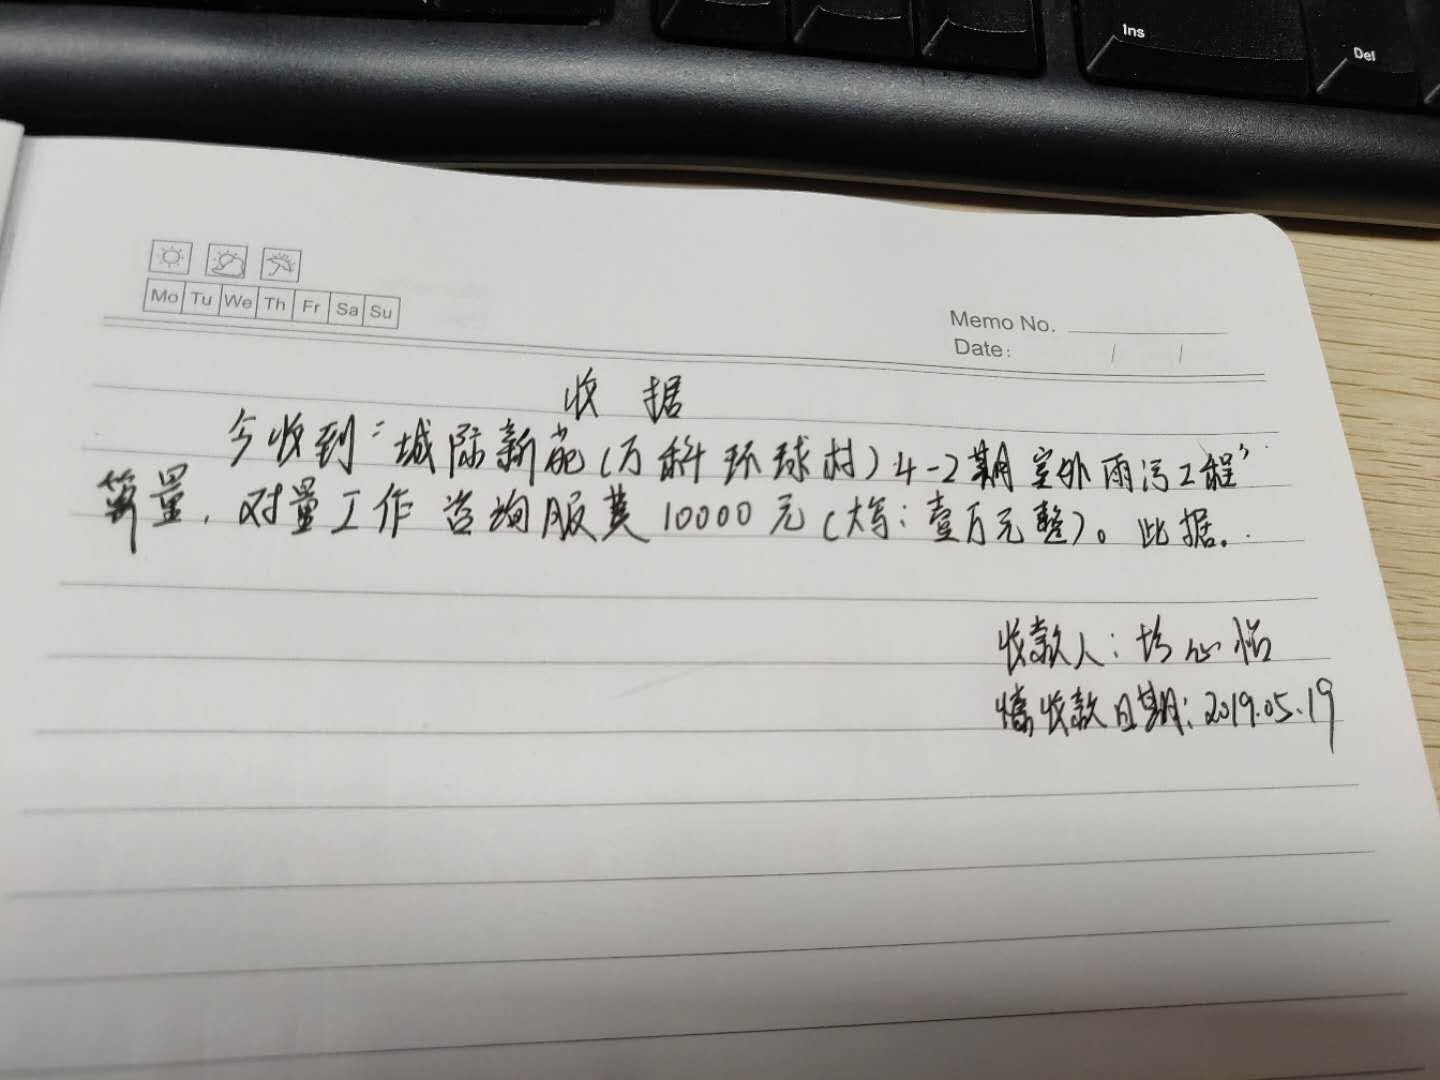 Ins
Del
Mo Tu We Th Fr Sa Su
Memo No.
Date: / /
收 据
今收到"城际新苑(万科环球村)4-2期室外雨污工程"
算量，对量工作咨询服务费10000元(大写:壹万元整)。此据.
收款人: 心怡
收款日期: 2019.05.19